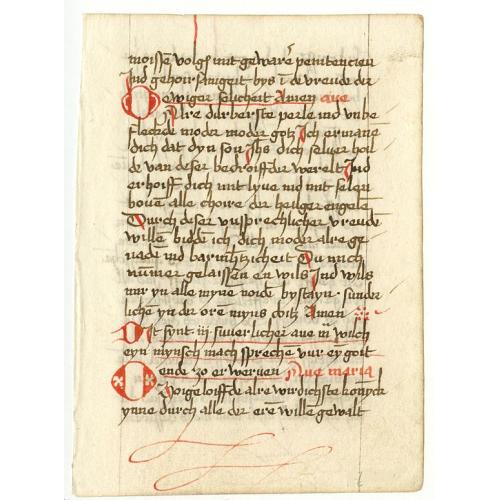 moisse volgē mit gewarē penitencien
Ind gehoirsamgeit bys ī de vreude der
ewiger selicheit Amen ave
O Alre durberste perle ind unbe
fleckde moder moder gotz Ich ermane
dich dat dyn son Jhs dich selver hoil
de van deser bedroiffder werelt Ind
erhoiff dich mit lyve ind mit selen
boven alle choire der heilger engele
Durch deser unsprechlicher vreude
wille bidde ich dich moder alre ge
naden ind barmhtzicheit Du mich
nūmer gelaissen en wils Ind wils
mir yn alle myne noide bystayn sunder
liche yn der oren myns doitz Amen
Dit synt iij suverlicher ave m wilch
eyn mynsch mach spreche vur eyn goit
ende zo erwerven Ave maria
O Alre wirdichste konynck
ynne durch alle der ere wille gewalt